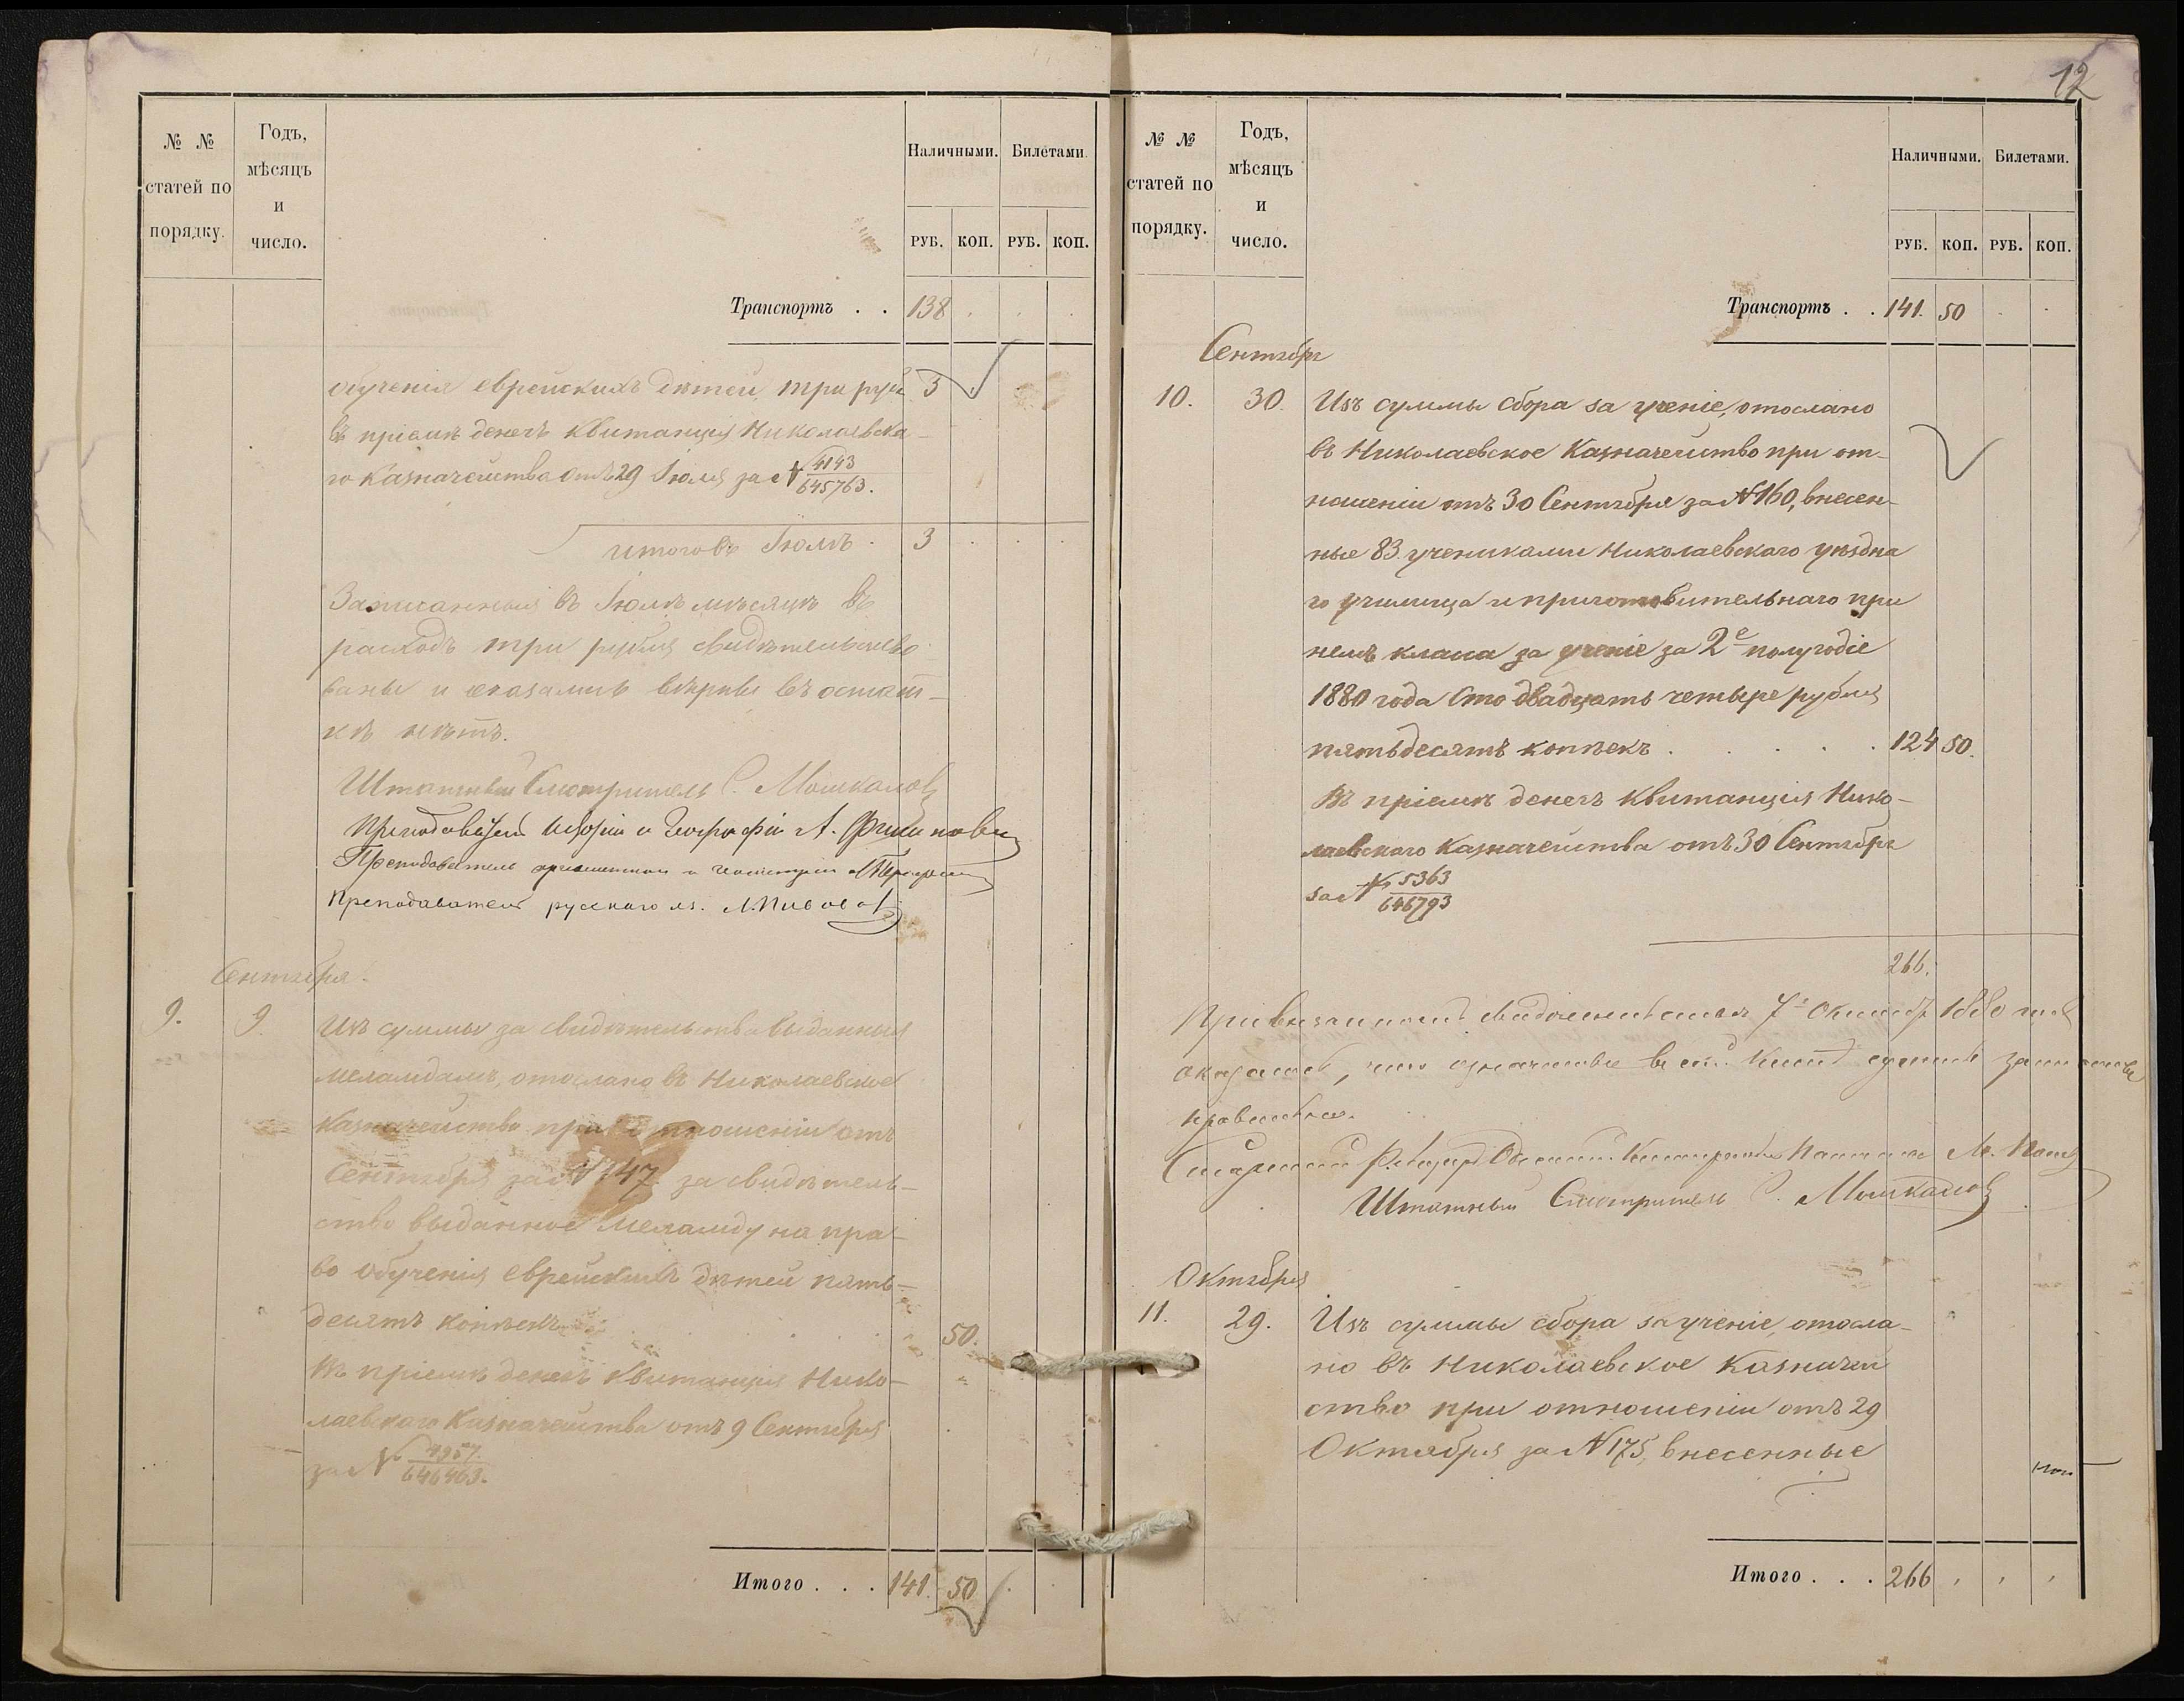 № №
статей по
порядку.
Годъ,
мѣсяцъ
и
число.
Наличными.
Билетами.
РУБ. КОП. РУБ. КОП.
Транспортъ . . 138
обученія еврейскихъ дѣтей, три руб. 3
въ пріемѣ денегъ квитанція Николаевска-
го Казначейства отъ 29 Іюля за № 4143
645763.
итого въ Іюлѣ . 3
Записанныя въ Іюлѣ мѣсяцѣ въ
расходъ три рубля свидѣтельство-
ваны и оказались вѣрны въ остат-
кѣ нѣтъ.
Штатный Смотритель С. Мошкалов
Преподаватель Исторіи и Географіи А.
Преподаватель ариѳметики и геометріи
Преподаватель русскаго яз.
Сентября.
9. 9. Изъ суммы за свидѣтельства выданныя
меламдамъ, отослано въ Николаевское
Казначейство при отношеніи отъ
Сентября за № 147 за свидѣтель-
ство выданное меламду на пра-
во обученія еврейскихъ дѣтей пять-
десятъ копѣекъ . . . 50.
Въ пріемѣ денегъ квитанція Нико-
лаевскаго Казначейства отъ 9 Сентября
за № 4957.
646463.
Итого . . . 141. 50
12
№ №
статей по
порядку.
Годъ,
мѣсяцъ
и
число.
Наличными.
Билетами.
РУБ. КОП. РУБ. КОП.
Транспортъ . . 141. 50
Сентябрь
10. 30. Изъ суммы сбора за ученіе, отослано
въ Николаевское Казначейство при от-
ношеніи отъ 30 Сентября за № 160, внесен-
ные 83 учениками Николаевскаго уѣздна
го училища и приготовительнаго при
немъ класса за ученіе за 2е полугодіе
1880 года Сто двадцать четыре рубля
пятьдесятъ копѣекъ . . . . . 124 50.
Въ пріемѣ денегъ квитанція Нико-
лаевскаго Казначейства отъ 30 Сентября
за № 5363
646793
266.
При внезапномъ свидѣтельствѣ 7 Октября 1880 года
оказалось, что въ сей книгѣ
правильно.
Старшій
Штатный Смотритель С. Мошкалов
Октября
11. 29. Изъ суммы сбора за ученіе, отосла-
но въ Николаевское Казначей
ство при отношеніи отъ 29
Октября за № 175, внесенные
Итого . . . 266